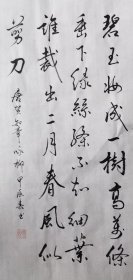 碧玉妝成一樹高萬條
垂下綠絲絛不知細葉
誰裁出二月春風似
剪刀
唐賀知章詠柳